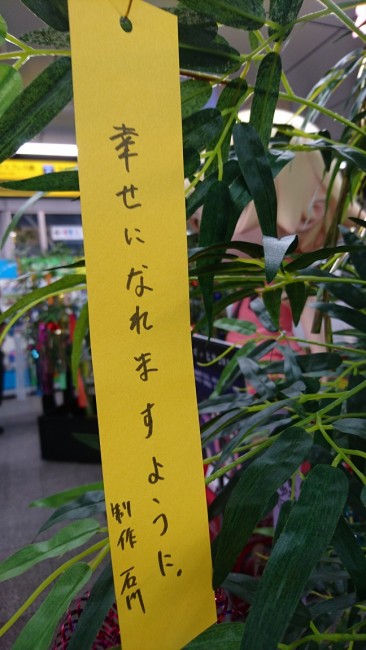 幸せになれますように.
制作 石川